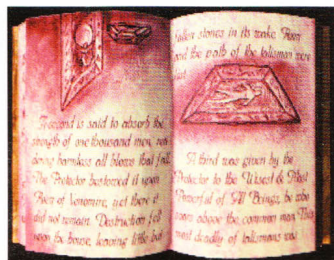 A second is said to absorb the
strength of one thousand men, ren-
dering harmless all blows that fall.
The Protector bestowed it upon
of there it
did not remain. Destruction fell
upon the house, leaving little but
fallen stones in its wake. Azon
and the path of the talisman were
lost.
A third was given by the
Protector to the Wisest & Most
Powerful of All Beings, he who
soars above the common man. This
most deadly of talismans was